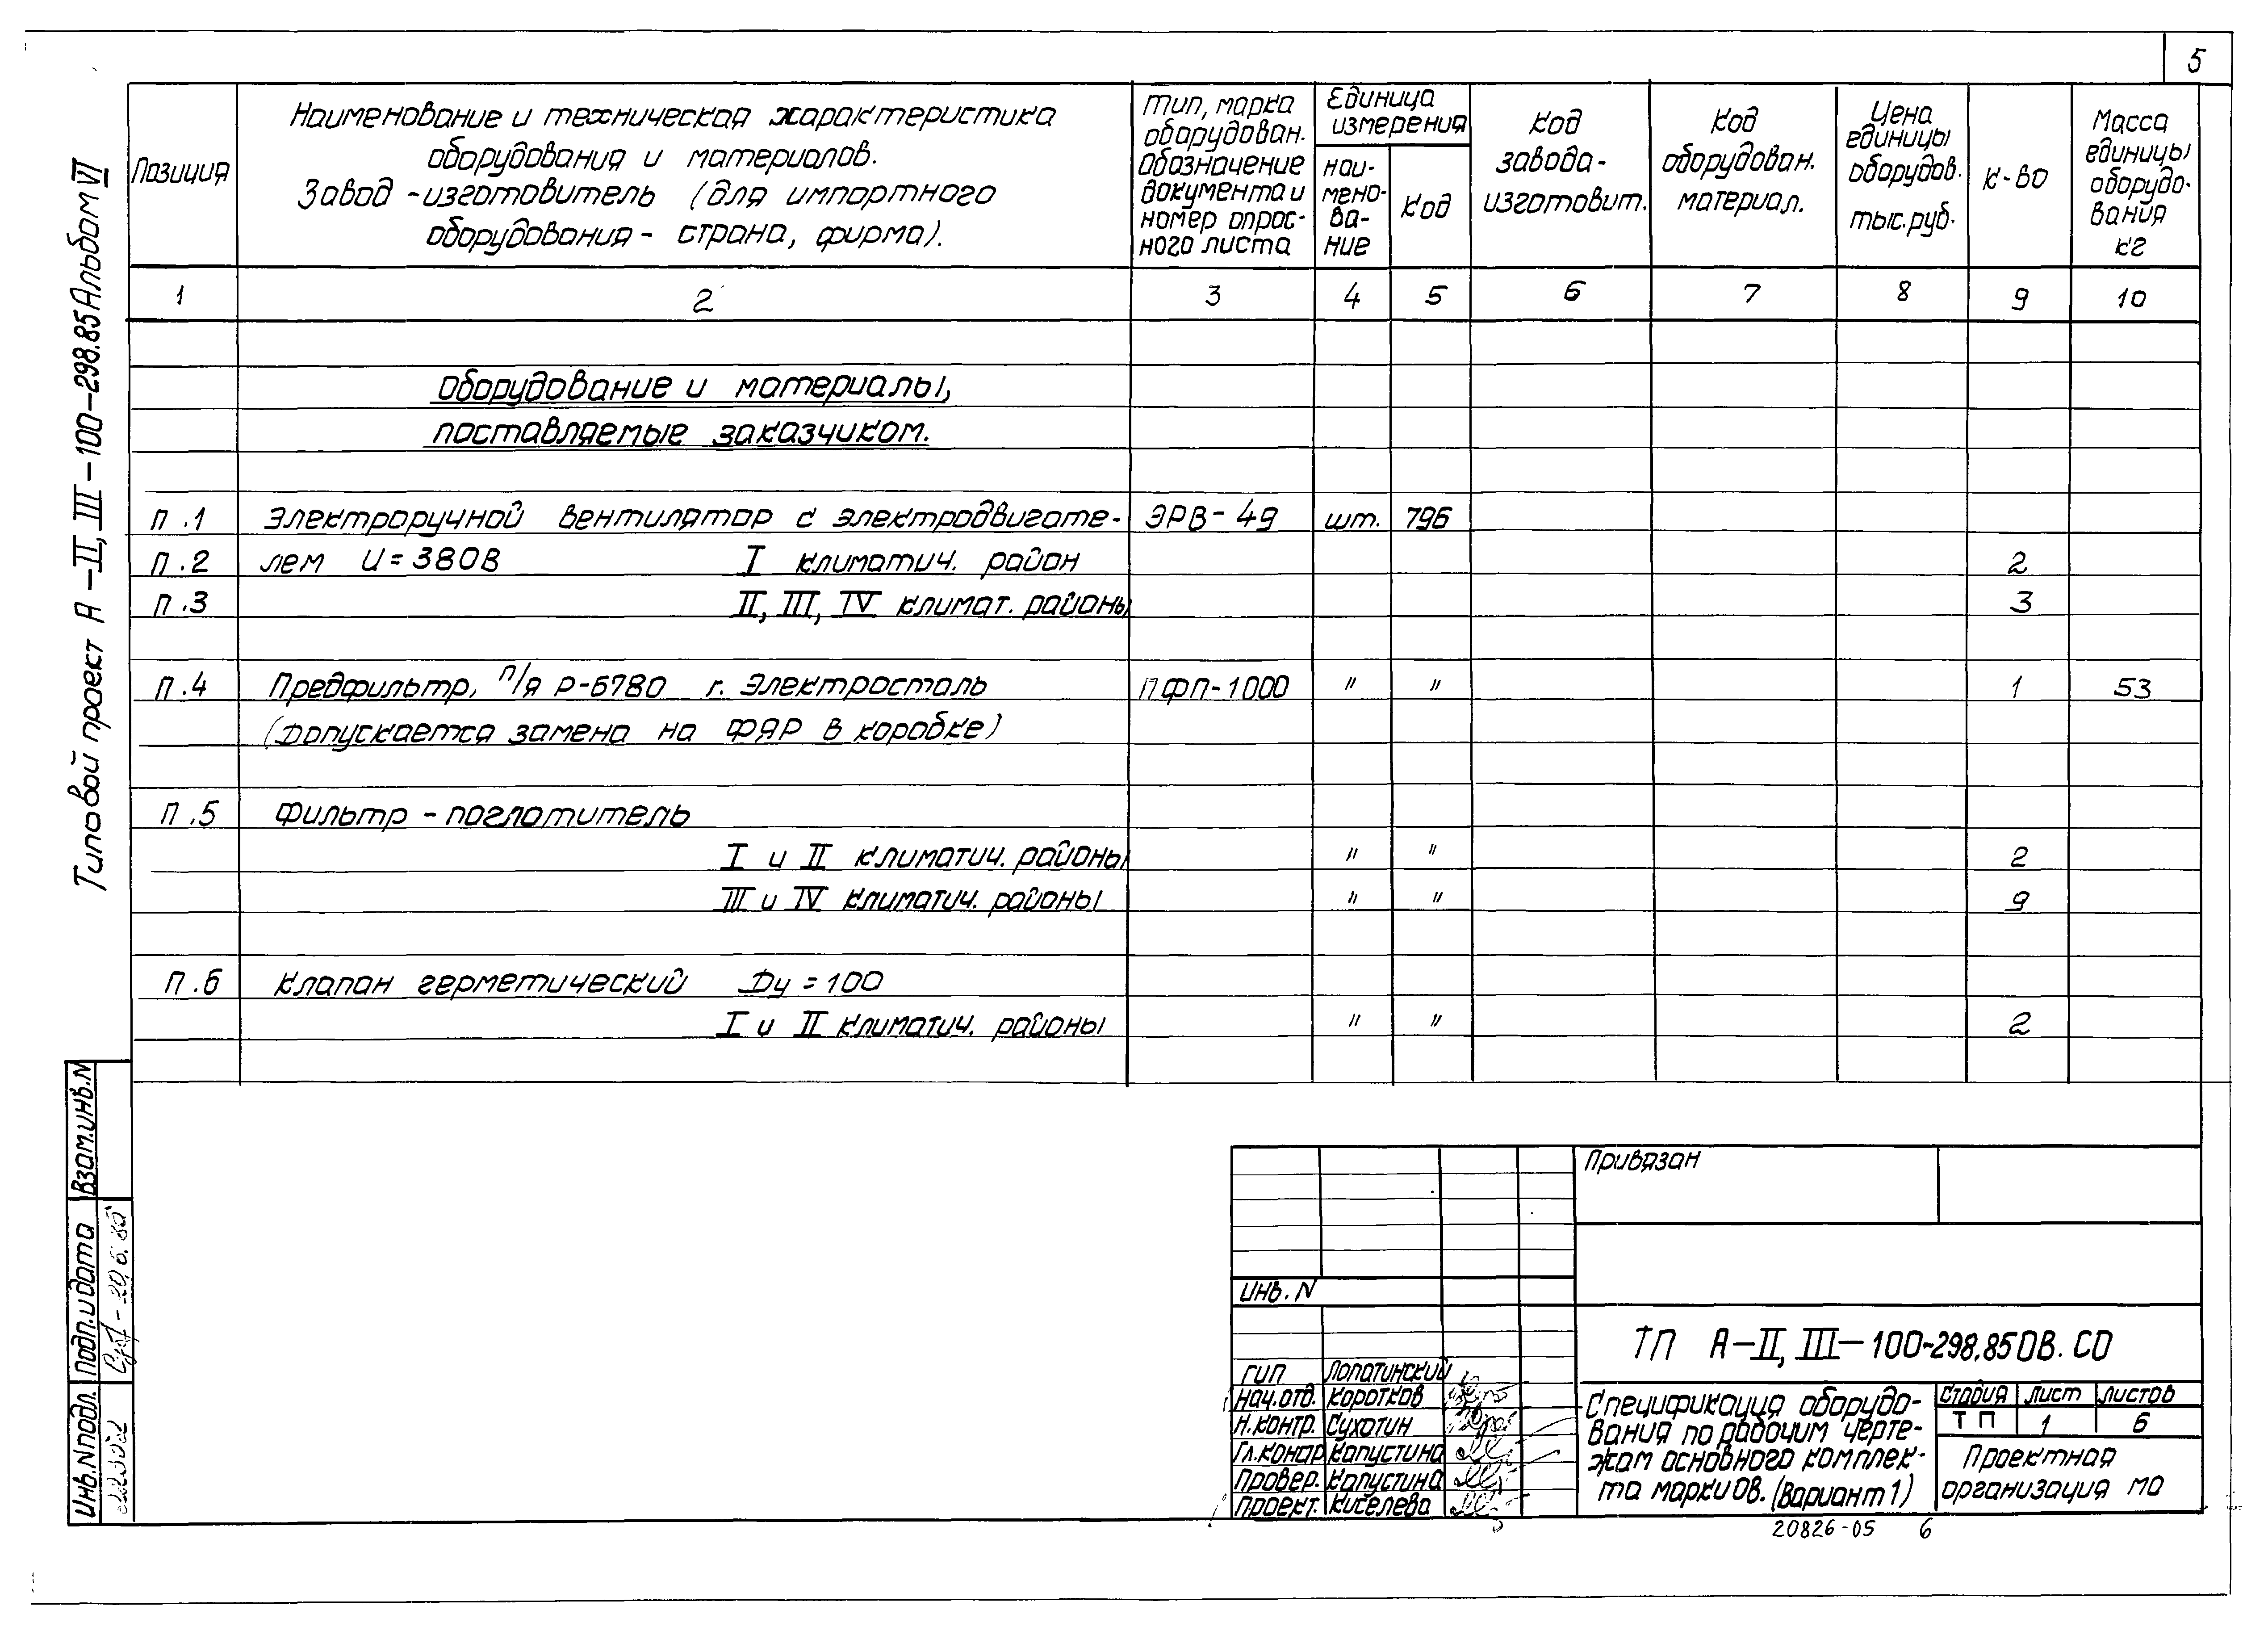 5
Типовой проект А-II, III-100-298.85 Альбом VI
Позиция
Наименование и техническая характеристика
оборудования и материалов.
Завод-изготовитель (для импортного
оборудования - страна, фирма).
Тип, марка
оборудован.
Обозначение
документа и
номер опрос-
ного листа
Единица
измерения
наи-
мено-
ва-
ние
Код
Код
завода-
изготовит.
Код
оборудован.
материал.
Цена
единицы
оборудов.
тыс.руб.
К-во
Масса
единицы
оборудо-
вания
кг
1 2 3 4 5 6 7 8 9 10
Оборудование и материалы,
поставляемые заказчиком.
П.1 Электроручной вентилятор с электродвигате- ЭРВ-49 шт. 796
П.2 лем U=380В I климатич. район 2
П.3 II, III, IV климат. районы 3
П.4 Предфильтр, п/я Р-6780 г. Электросталь ПФП-1000 " " 1 53
(Допускается замена на ФЯР в коробке)
П.5 Фильтр-поглотитель
I и II климатич. районы " " 2
III и IV климатич. районы " " 9
П.6 Клапан герметический Ду=100
I и II климатич. районы " " 2
Взам.инв.N
Подп. и дата
Инв.N подл.
Привязан
Инв. N
ТП А-II, III-100-298.85 ОВ. СО
ГИП Лопатинский
Нач.отд. Коротков
Н.контр. Сухотин
Гл.констр Капустина
Провер. Капустина
Проект. Киселева
Спецификация оборудо-
вания по рабочим черте-
жам основного комплек-
та марки ОВ. (Вариант 1)
Стадия Лист Листов
ТП 1 6
Проектная
организация МО
20826-05 6